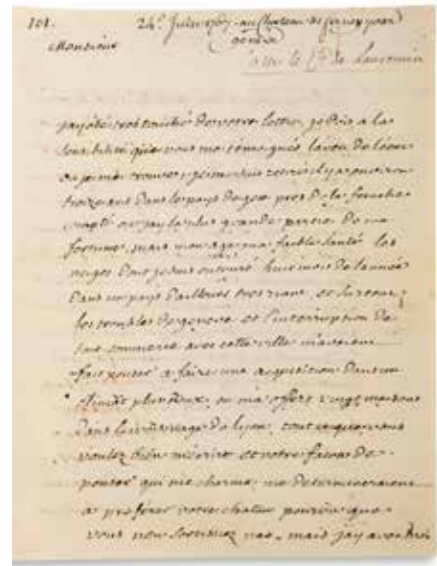 101. 24e Juin 1767. au Chateau de ferney par
geneve
Monsieur
a Mr le Cte de Laurencin
jay été tres touché de votre lettre, je dois a la
sensibilité que vous me temoignés l'aveu de l'état
ou je me trouve; je me suis retiré il y a environ
treize ans dans le pays de gex pres de la franche
comté ou jay la plus grande partie de ma
fortune, mais mon age, ma faible santé, les
neiges dont je suis entouré huit mois de l'année
dans un pays d'ailleurs tres riant, et surtout
les troubles de geneve et l'interruption de
tout commerce avec cette ville m'avaient
fait penser a faire une acquisition dans un
climat plus doux, on m'a offert vingt maisons
dans le voisinage de lyon, tout ce que vous
voulez bien m'écrire et votre facon de
penser qui me charme, me determineraient
a preferer votre chateau pourvu que
vous n'en sortissiez pas, mais jay avec moi